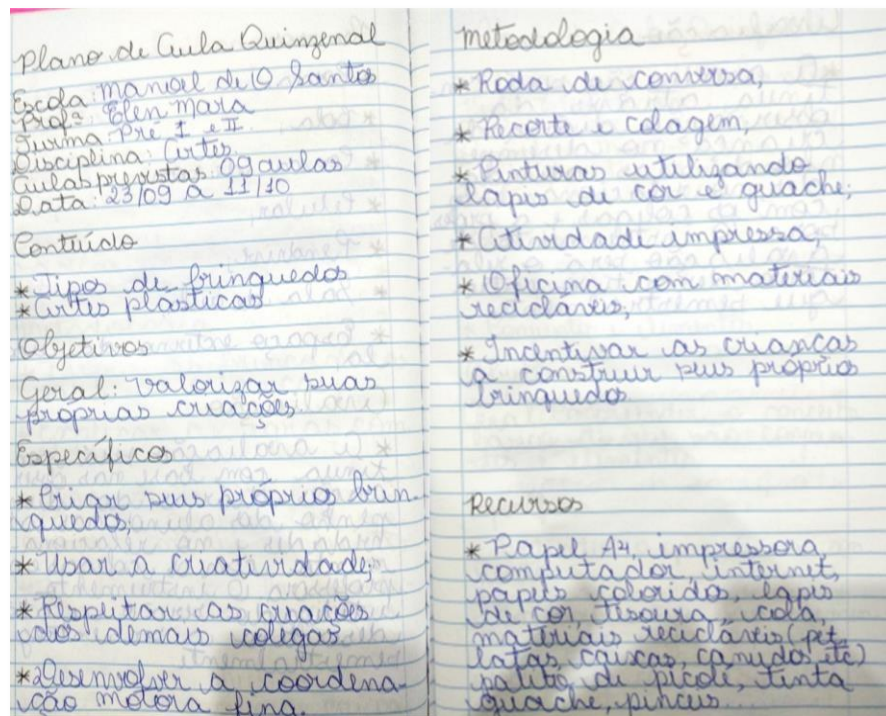 Plano de Aula Quinzenal
Escola: Manoel de O Santos
Profª Elen Mara
Turma Pré I e II
Disciplina: Artes
Aulas previstas: 09 aulas
Data: 23/09 a 11/10
Conteúdo
* Tipos de brinquedos
* Artes plásticas
Objetivos
Geral: Valorizar suas
próprias criações.
Específicos
* Criar seus próprios brin-
quedos,
* Usar a criatividade;
* Respeitar as criações
dos demais colegas
* Desenvolver a coordena-
ção motora fina.
Metodologia
* Roda de conversa,
* Recorte e colagem,
* Pinturas utilizando
lápis de cor e guache;
* Atividade impressa,
* Oficina com materiais
recicláveis,
* Incentivar as crianças
a construir seus próprios
brinquedos
Recursos
* Papel A4, impressora,
computador, internet,
papéis coloridos, lápis
de cor, tesoura, cola,
materiais recicláveis (pet,
latas, caixas, canudos, etc)
palito de picolé, tinta
guache, pincéis...